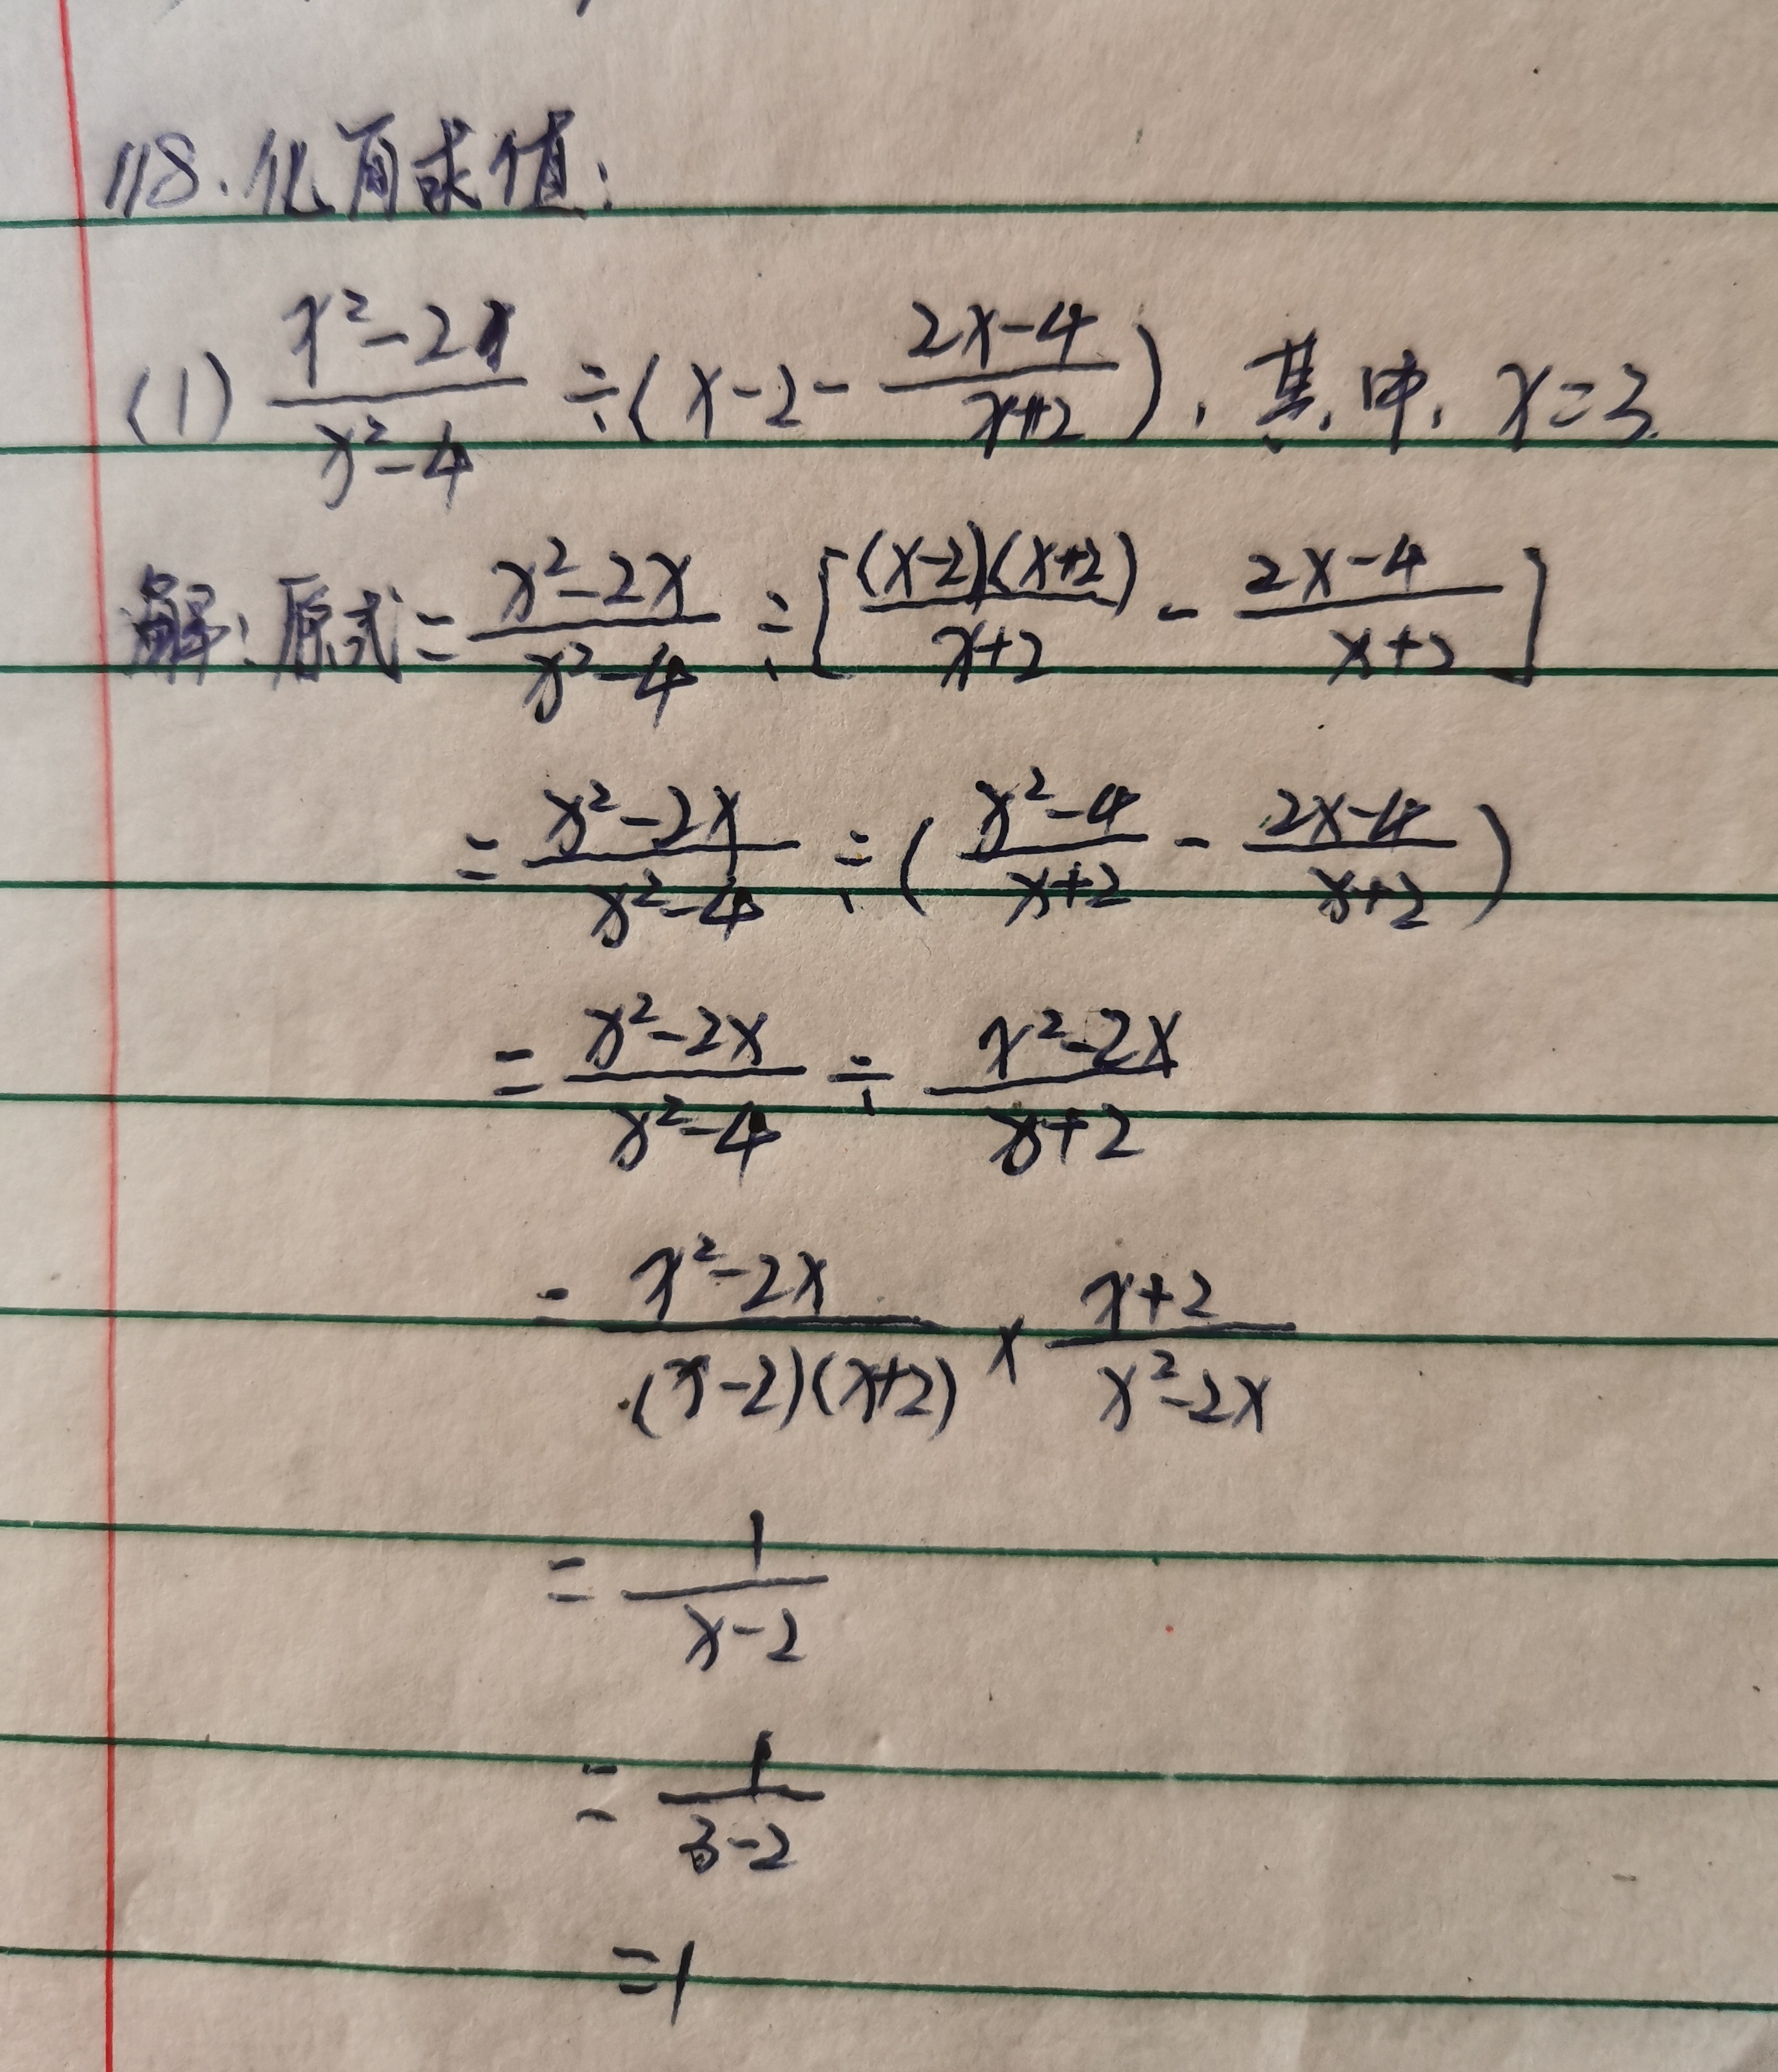 118.化简求值:
(1) \frac{x^2-2x}{x^2-4} ÷ (x-2-\frac{2x-4}{x+2}), 其中, x=3.
解:原式= \frac{x^2-2x}{x^2-4} ÷ [\frac{(x-2)(x+2)}{x+2} - \frac{2x-4}{x+2}]
= \frac{x^2-2x}{x^2-4} ÷ (\frac{x^2-4}{x+2} - \frac{2x-4}{x+2})
= \frac{x^2-2x}{x^2-4} ÷ \frac{x^2-2x}{x+2}
= \frac{x^2-2x}{(x-2)(x+2)} × \frac{x+2}{x^2-2x}
= \frac{1}{x-2}
= \frac{1}{3-2}
=1